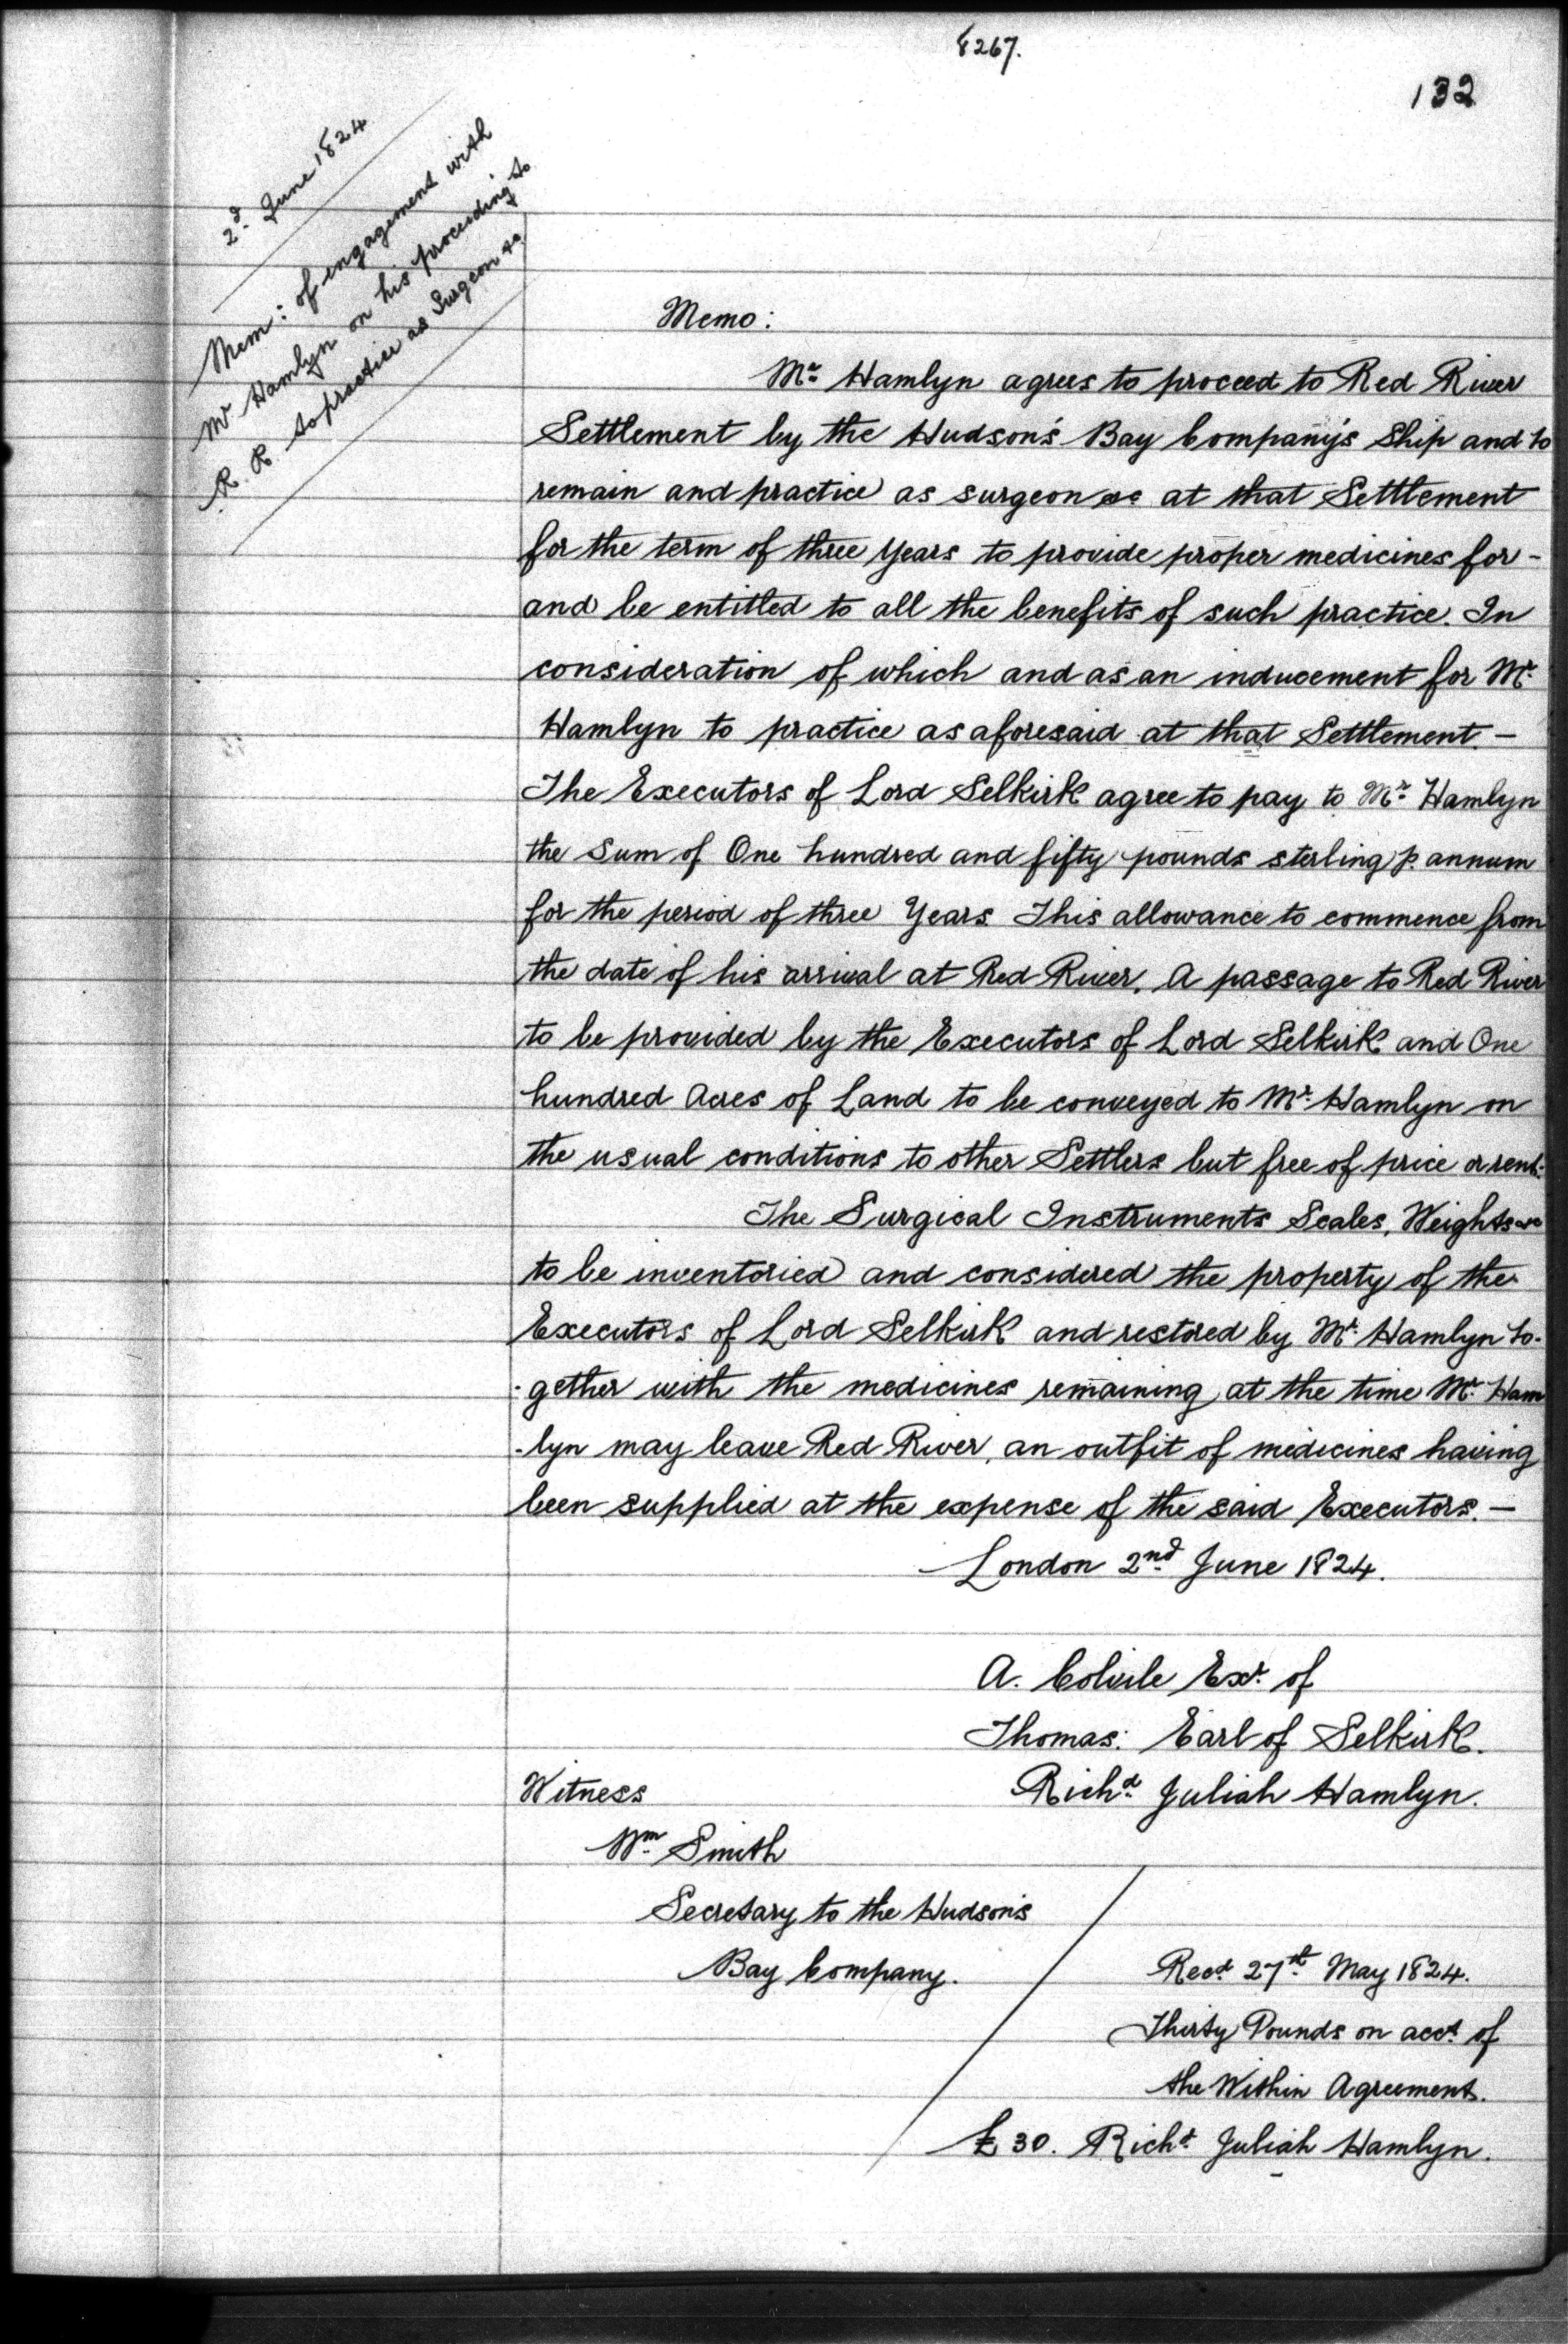 8267.
132
2d June 1824
Mem: of engagement with
Mr Hamlyn on his proceeding to
R. R. to practice as Surgeon &c
Memo:
Mr Hamlyn agrees to proceed to Red River
Settlement by the Hudson's Bay Company's Ship and to
remain and practice as surgeon &c at that Settlement
for the term of three Years to provide proper medicines for -
and be entitled to all the benefits of such practice. In
consideration of which and as an inducement for Mr
Hamlyn to practice as aforesaid at that Settlement. -
The Executors of Lord Selkirk agree to pay to Mr Hamlyn
the Sum of One hundred and fifty pounds sterling p. annum
for the period of three Years. This allowance to commence from
the date of his arrival at Red River. A passage to Red River
to be provided by the Executors of Lord Selkirk and One
hundred Acres of Land to be conveyed to Mr Hamlyn on
the usual conditions to other Settlers but free of price or rent.
The Surgical Instruments Scales, Weights &c
to be inventoried and considered the property of the
Executors of Lord Selkirk and restored by Mr Hamlyn to-
-gether with the medicines remaining at the time Mr Ham
-lyn may leave Red River, an outfit of medicines having
been supplied at the expense of the said Executors. -
London 2nd June 1824.
A. Colvile Exr of
Thomas: Earl of Selkirk.
Witness Richd Juliah Hamlyn.
Wm Smith
Secretary to the Hudson's
Bay Company.
Recd 27th May 1824.
Thirty Pounds on acct of
the Within Agreement.
£30. Richd Juliah Hamlyn.